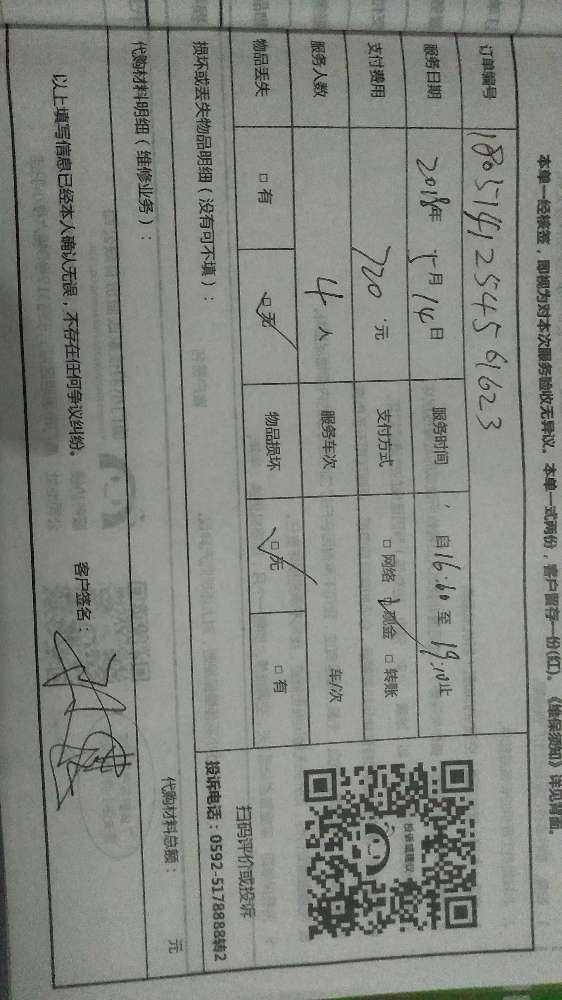 本单一经核签，即视为对本次服务验收无异议。本单一式两份，客户留存一份(红)。《维保须知》详见背面。
订单编号 180514125459623
服务日期 2018年5月14日 服务时间 自16:10至19:10止
支付费用 720元 支付方式 □网络 ☑现金 □转账
服务人数 4人 服务车次 车/次
物品丢失 □有 ☑无 物品损坏 ☑无 □有
损坏或丢失物品明细（没有可不填）：
投诉建议
扫码评价或投诉
投诉电话：0592-5178888转2
代购材料明细（维修业务）：
代购材料总额： 元
以上填写信息已经本人确认无误，不存在任何争议纠纷。 客户签名：